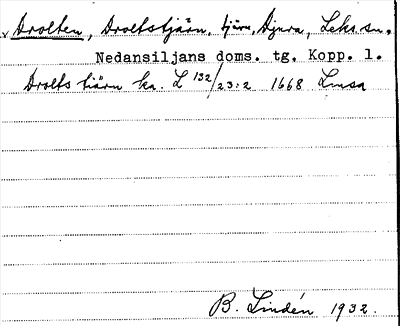 v Drolten, Droltstjärn, tjärn, Djura, Leks. sn.
Nedansiljans doms. tg. Kopp. l.
Drolts tiärn ka. L 132/23:2 1668 Lmsa
B. Lindén 1932.